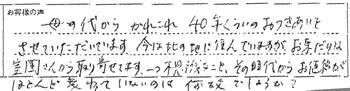 お客様の声
母の代から かれこれ 40年くらいのおつきあいと
させていただいています。今は他の地に住んでいますがお茶だけは
宝園さんから取り寄せてます。一つ不思議なこと、その時代からお値段が
ほとんど変わっていないのは 何故でしょうか？